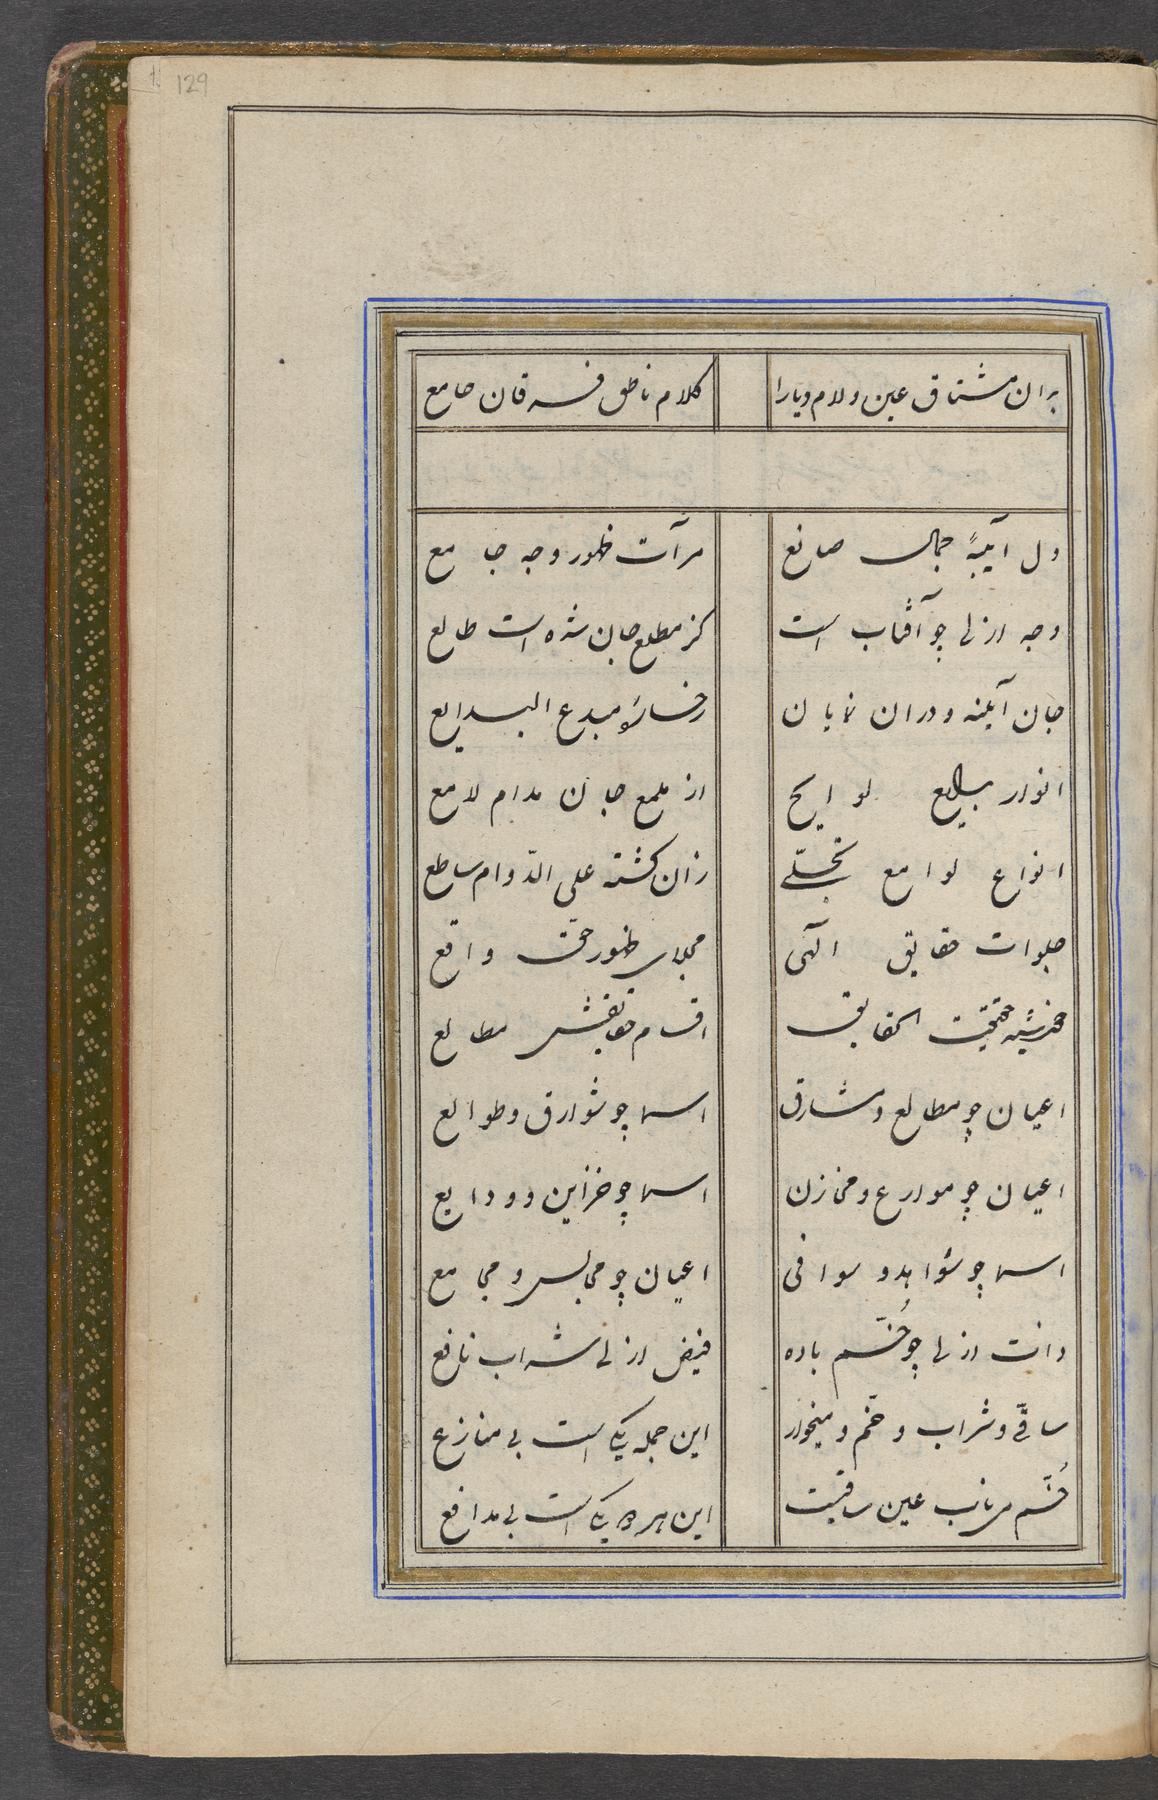 129
بدان مشتاق عین و لام و یا را کلام ناطق فرقان جامع
دل آیینهٔ جمال صانع مرآت ظهور وجه جامع
وجه ازلی چو آفتاب است کز مطلع جان شده است طالع
جان آینه و دران نمایان رخسارهٔ مبدع البدایع
انوار لوایح از ملمع جان مدام لامع
انواع لوامع تجلّی زان گشته علی الدّوام ساطع
جلوات حقایق الهی مجلای ظهور حق واقع
حقیقت الحقایق اقسام حقایقش مطالع
اعیان چو مطالع و مشارق اسما چو شوارق و طوالع
اعیان چو موارع و مخازن اسما چو خزاین و ودایع
اسما چو شواهد و سواقی اعیان چو مجالس و مجامع
ذات ازلی چو خُمّ باده فیض ازلی شراب نافع
ساقیّ و شراب و خم و میخوار این جمله یکی است بی منازع
خُمّ می ناب عین ساقیست این هر دو یکی است بی مدافع